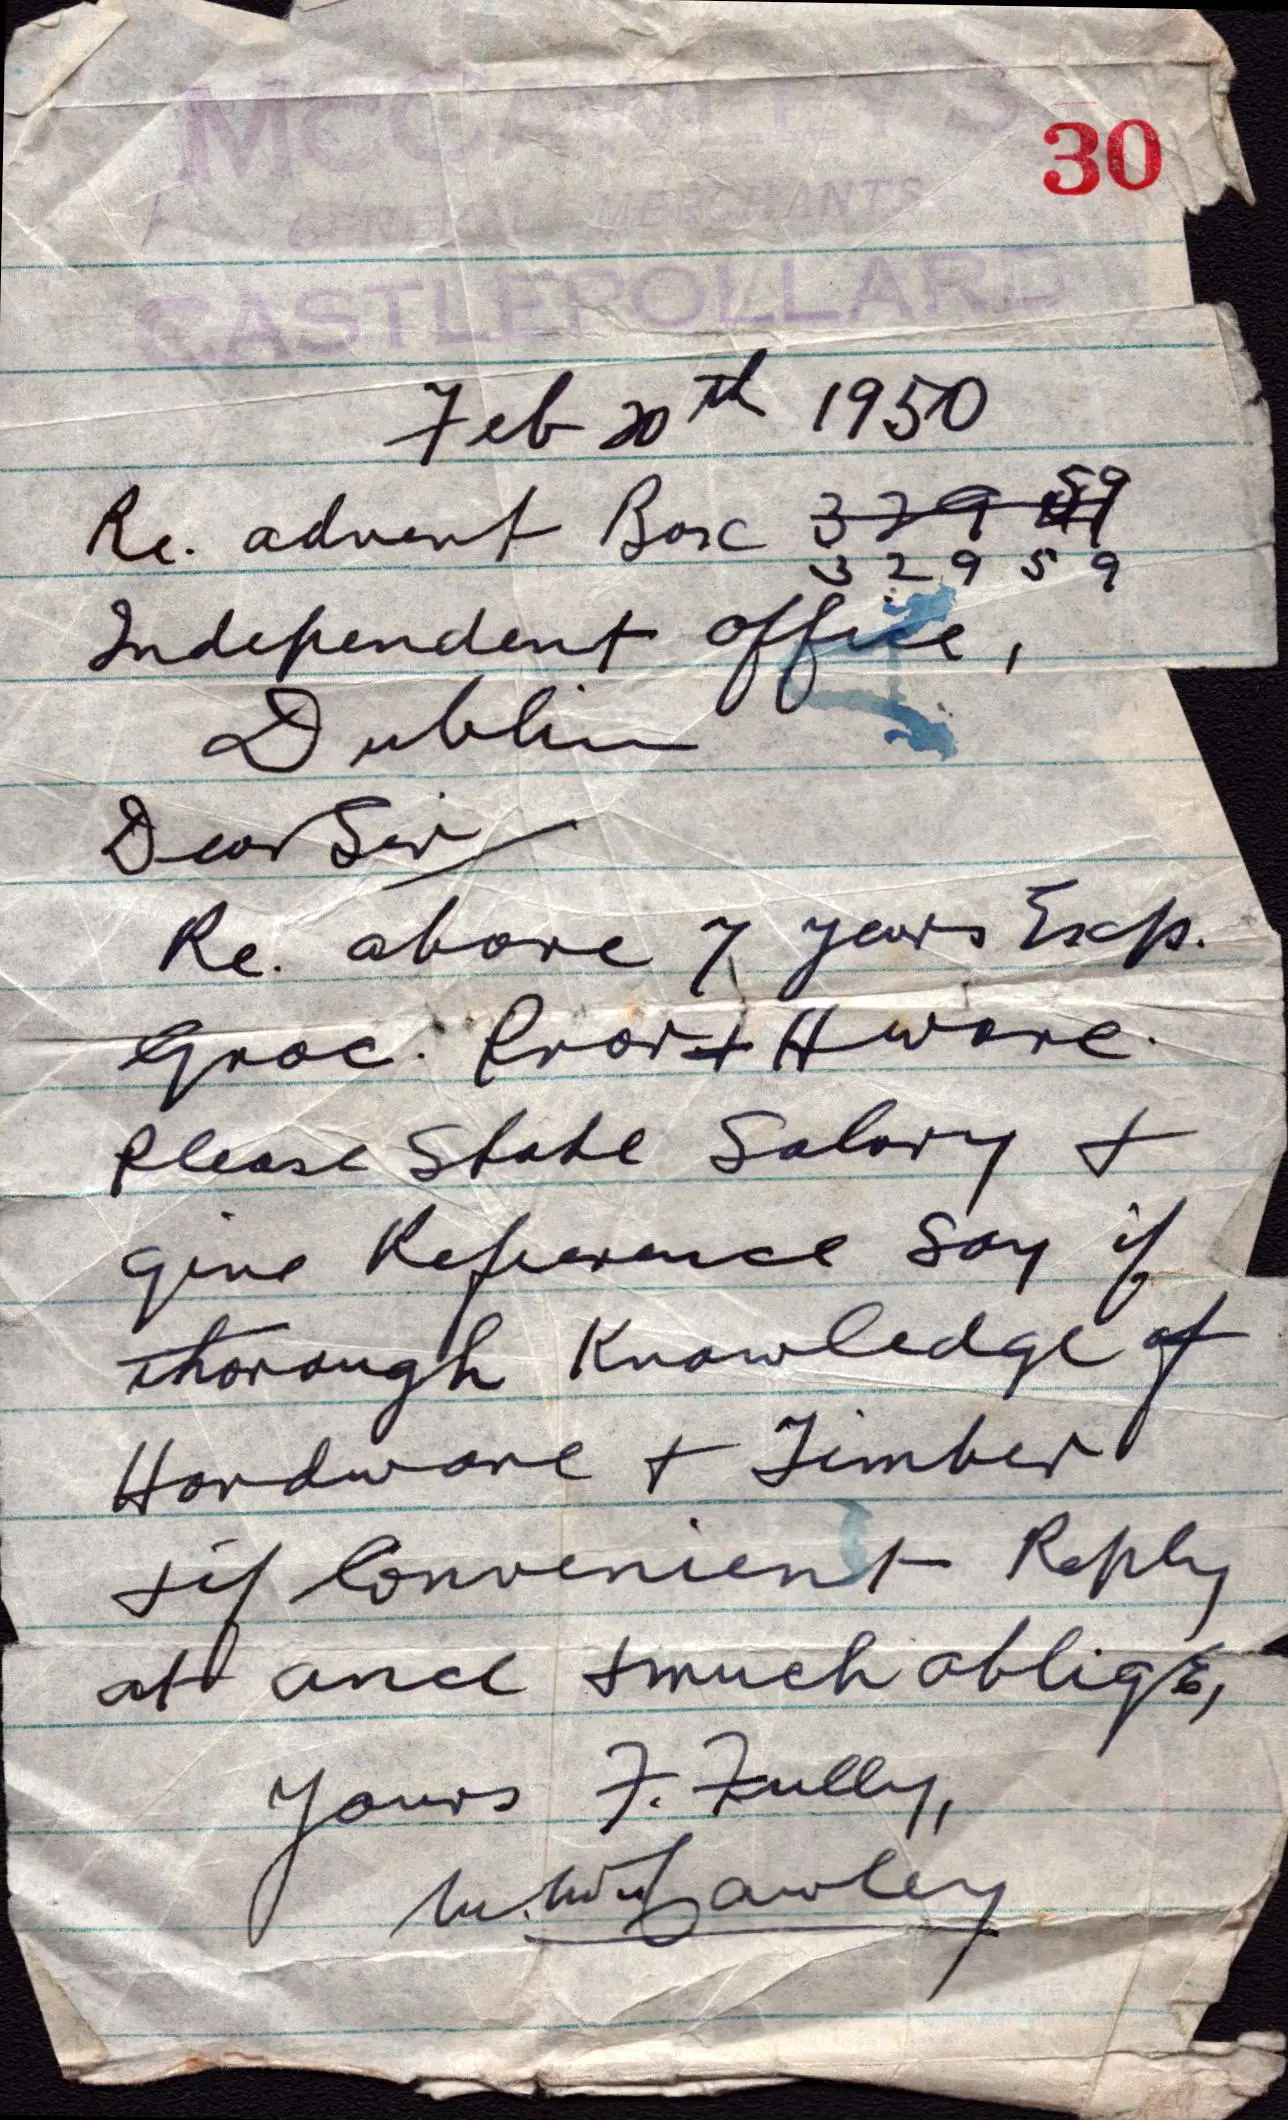 McCAWLEY'S
30
GENERAL MERCHANTS
CASTLEPOLLARD
Feb 20th 1950
Re. advent Box 329 59
32959
Independent office,
Dublin
Dear Sir
Re. above 7 years Exp.
Groc. Prov + Hware.
Please State Salary +
give Reference Say if
thorough Knowledge of
Hardware + Timber
+ if Convenient Reply
at once + much oblige,
Yours F. Fully,
Cawley